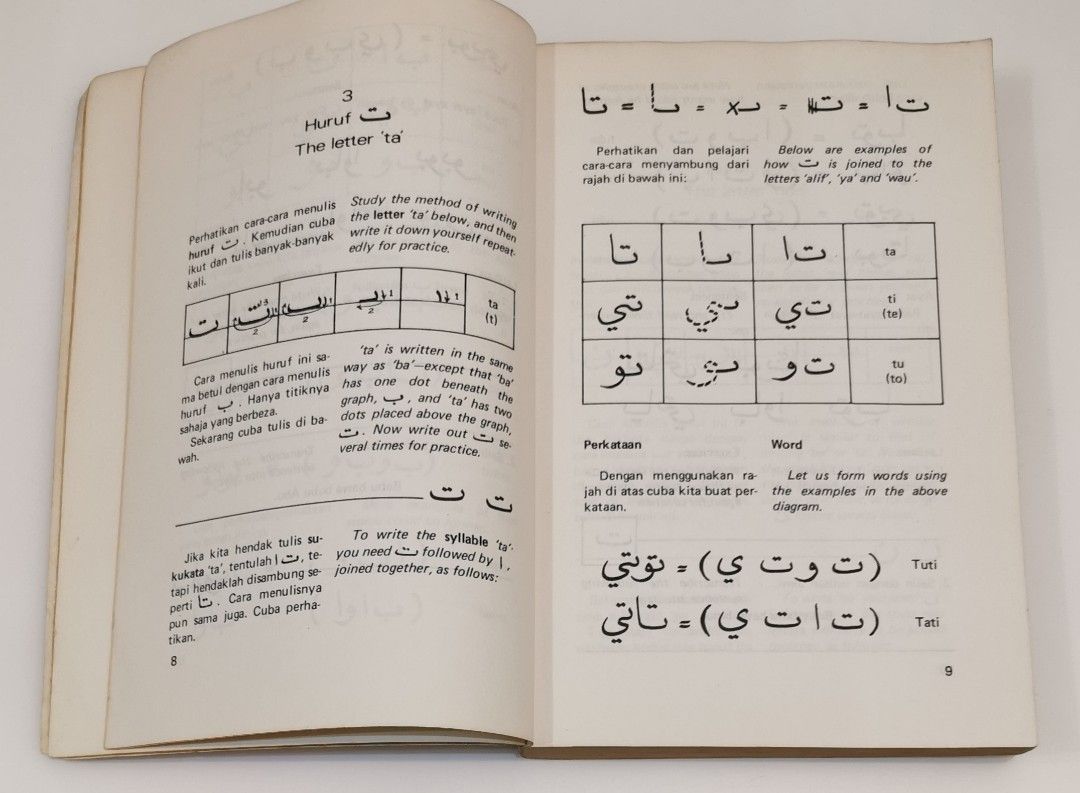 3
Huruf ت
The letter 'ta'
Perhatikan cara-cara menulis
huruf ت . Kemudian cuba
ikut dan tulis banyak-banyak
kali.
Study the method of writing
the letter 'ta' below, and then
write it down yourself repeat-
edly for practice.
ت
ta
(t)
Cara menulis huruf ini sa-
ma betul dengan cara menulis
huruf ب . Hanya titiknya
sahaja yang berbeza.
Sekarang cuba tulis di ba-
wah.
'ta' is written in the same
way as 'ba'—except that 'ba'
has one dot beneath the
graph, ب , and 'ta' has two
dots placed above the graph,
ت . Now write out ت se-
veral times for practice.
ت ت
Jika kita hendak tulis su-
kukata 'ta', tentulah ت ا , te-
tapi hendaklah disambung se-
perti تا . Cara menulisnya
pun sama juga. Cuba perha-
tikan.
To write the syllable 'ta'
you need ت followed by ا ,
joined together, as follows:
8
ت ا = = = = تا
Perhatikan dan pelajari
cara-cara menyambung dari
rajah di bawah ini:
Below are examples of
how ت is joined to the
letters 'alif', 'ya' and 'wau'.
تا ت ا ta
تي ت ي ti
(te)
تو ت و tu
(to)
Perkataan
Word
Dengan menggunakan ra-
jah di atas cuba kita buat per-
kataan.
Let us form words using
the examples in the above
diagram.
(ت و ت ي) = توتي Tuti
(ت ا ت ي) = تاتي Tati
9